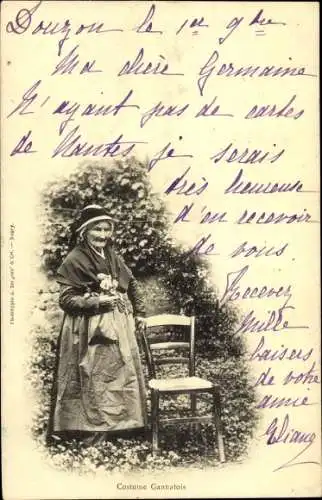 Douzon le 1er 9bre
Ma chère Germaine
N'ayant pas de cartes
de Nantes je serais
très heureuse
d'en recevoir
de vous.
Recevez
Mille
baisers
de votre
amie
Costume Gannatois